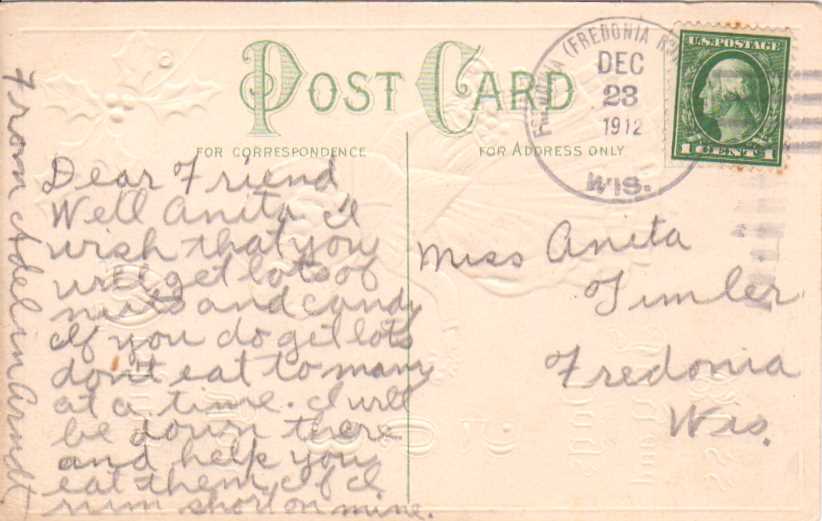 POST CARD
FOR CORRESPONDENCE
FOR ADDRESS ONLY
(FREDONIA
DEC
23
1912
WIS.
U.S. POSTAGE
1 CENT
Dear Friend
Well Anita. I
wish that you
will get lots of
nuts and candy
If you do get lots
dont eat to many
at a time. I will
be down there
and help you
eat them, if I
rum short on mine.
From Adelin Arndt
Miss Anita
Timler
Fredonia
Wis.